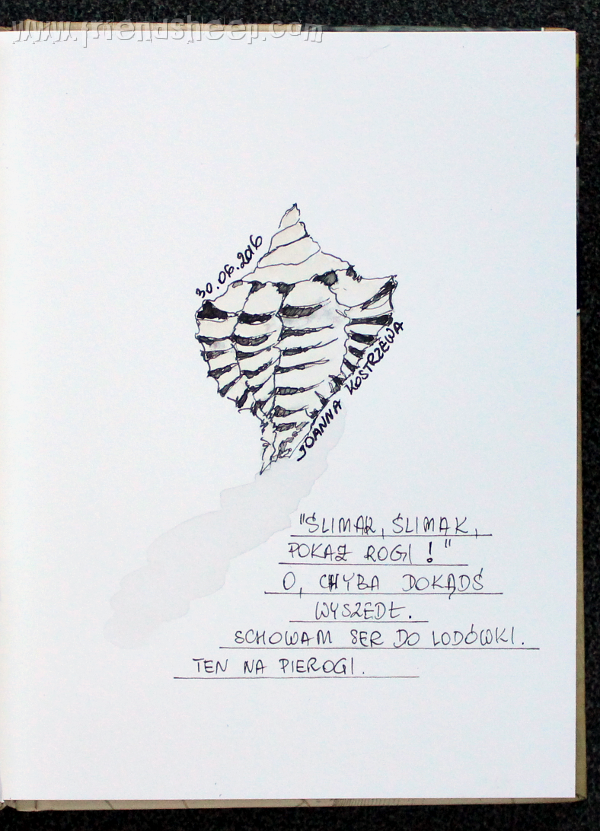 www.friendsheep.com
30.06.2016
JOANNA KOSTRZEWA
"ŚLIMAK, ŚLIMAK,
POKAŻ ROGI!"
O, CHYBA DOKĄDŚ
WYSZEDŁ.
SCHOWAM SER DO LODÓWKI.
TEN NA PIEROGI.